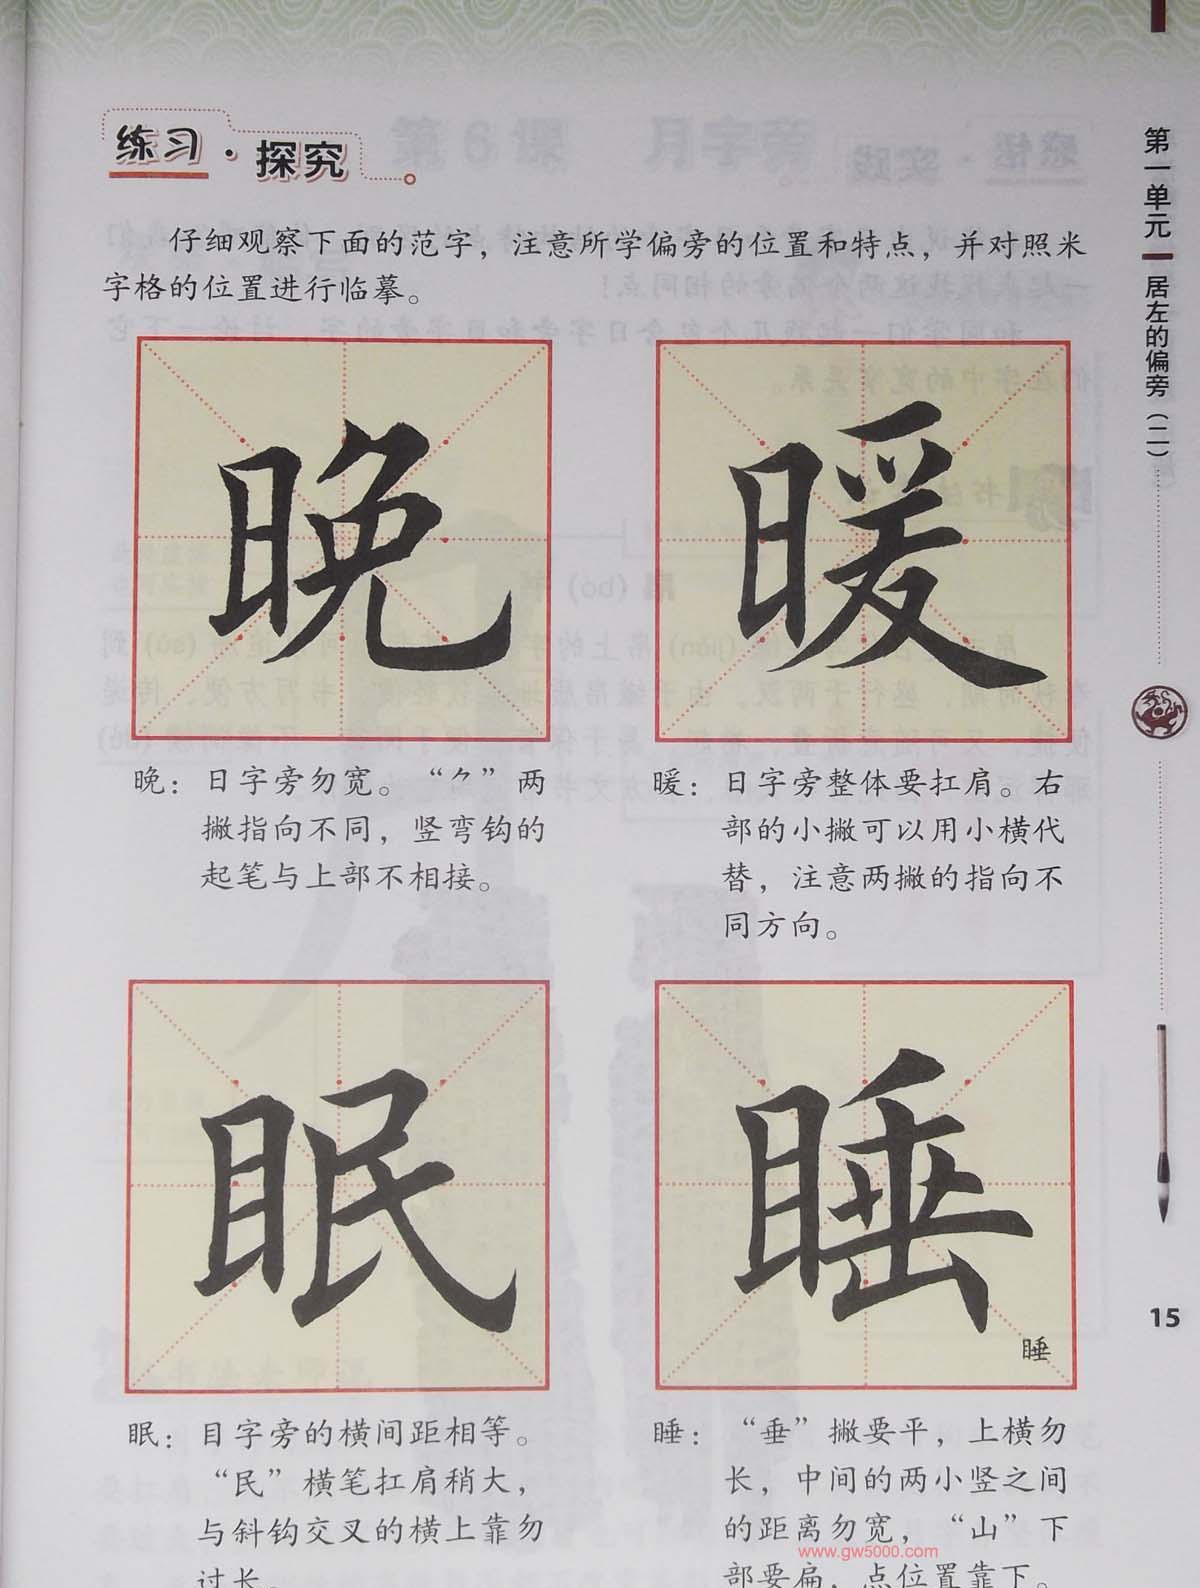 练习·探究
仔细观察下面的范字，注意所学偏旁的位置和特点，并对照米
字格的位置进行临摹。
晚
暖
晚：日字旁勿宽。“⺈”两
撇指向不同，竖弯钩的
起笔与上部不相接。
暖：日字旁整体要扛肩。右
部的小撇可以用小横代
替，注意两撇的指向不
同方向。
眠
睡
睡
眠：目字旁的横间距相等。
“民”横笔扛肩稍大，
与斜钩交叉的横上靠勿
过长。
睡：“垂”撇要平，上横勿
长，中间的两小竖之间
的距离勿宽，“山”下
部要扁，点位置靠下。
第一单元 居左的偏旁（二）
15
www.gw5000.com